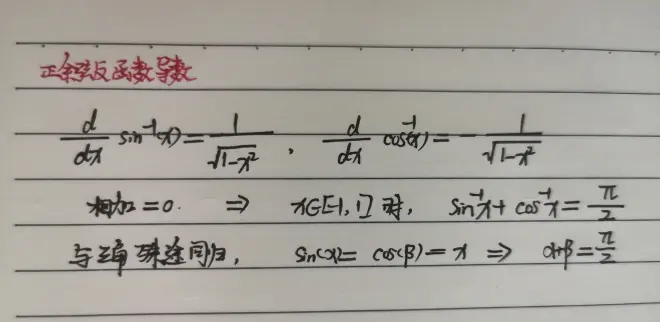 正余弦反函数导数
d/dx sin⁻¹(x) = 1/√(1-x²) , d/dx cos⁻¹(x) = -1/√(1-x²)
相加=0. ⇒ x∈[-1,1]时, sin⁻¹x + cos⁻¹x = π/2
与三角殊途同归, sin(α) = cos(β) = x ⇒ α+β = π/2